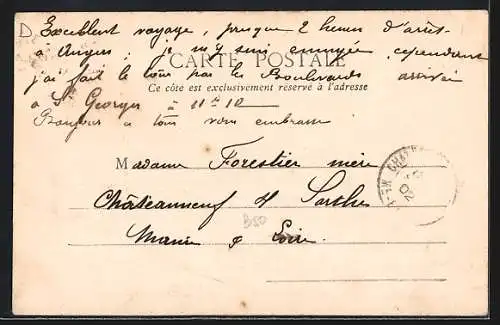 Excellent voyage, presque 2 heures d'arrêt
à Angers ; je m'y suis ennuyée, cependant
CARTE POSTALE
j'ai fait le tour par les Boulevards arrivée
Ce côté est exclusivement réservé à l'adresse
à St Georges à 11h 10
Bonjour à tous vous embrasse
Madame Forestier mère
Châteauneuf s/ Sarthe
Maine & Loire
B50